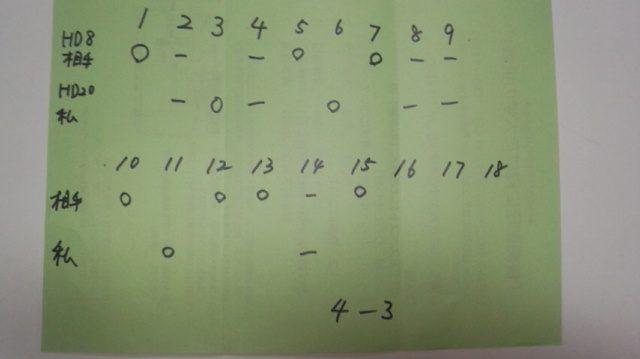 1 2 3 4 5 6 7 8 9
HD8
相手 O - - O O - -
HD20
私 - O - O - -
10 11 12 13 14 15 16 17 18
相手 O O O - O
私 O -
4-3